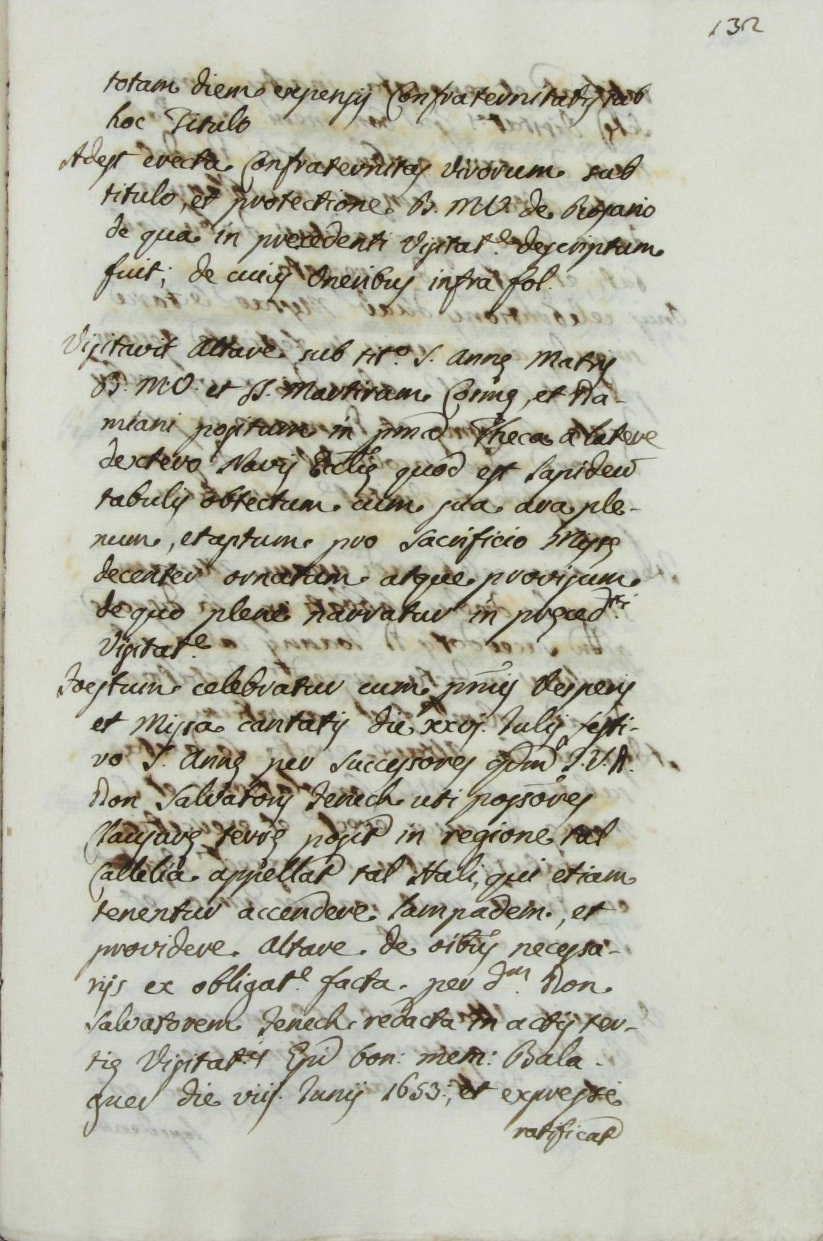 132
totam diem expensis Confraternitatis sub
hoc Titulo
Adest erecta Confraternitas Virorum sub
titulo, et protectione B. M. V. de Rosario
de qua in precedenti Visitat.e descriptum
fuit; de cuius Oneribus infra fol.
Visitavit Altare sub tit.o S. Annę Matris
B. M. V. et SS. Martirum Cosmę, et Da-
miani positum in pma Theca a latere
dextero Navis Ecclię quod est lapideū
tabulis obtectum cum sua ara ple-
num, et aptum pro Sacrificio Missę
decenter ornatum atque provisum
de quo plene narratur in pręced.ti
Visitat.e
Festum celebratur cum pmis Vesperis
et Missa cantatis die xxvj. Julij festi-
vo S. Annę per Successores qdm J. V. D.
Don Salvatoris Fenech uti possores
Clausurę terrę posit in regione tal
Callelia appellat tal Hali, qui etiam
tenentur accendere lampadem, et
providere Altare de oibus necessa-
rijs ex obligat.e facta per d.um Don
Salvatorem Fenech redacta in actis ter-
tię Visitat.is Epi bon: mem: Bala-
guer die viij. Junij 1653; et expresse
ratificat